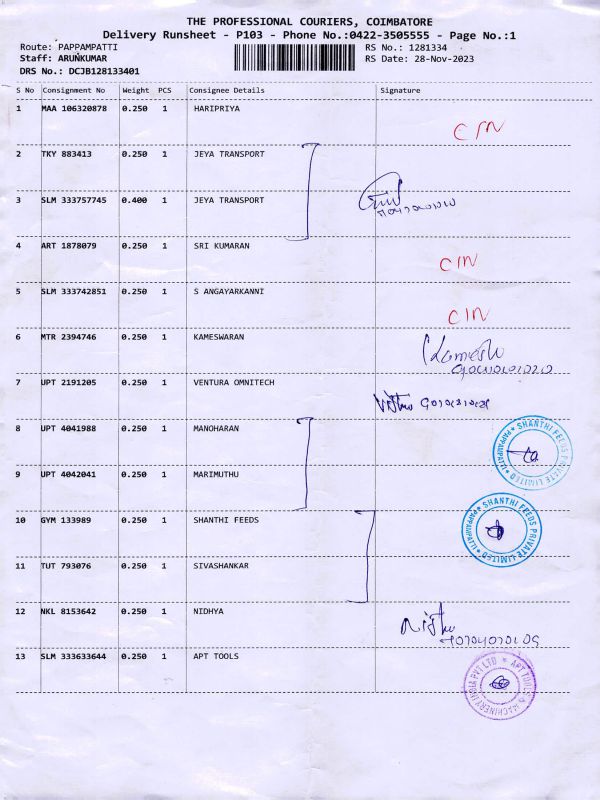 THE PROFESSIONAL COURIERS, COIMBATORE
Delivery Runsheet - P103 - Phone No.:0422-3505555 - Page No.:1
Route: PAPPAMPATTI RS No.: 1281334
Staff: ARUNKUMAR RS Date: 28-Nov-2023
DRS No.: DCJB128133401
S No Consignment No Weight PCS Consignee Details Signature
1 MAA 106320878 0.250 1 HARIPRIYA
CIN
2 TKY 883413 0.250 1 JEYA TRANSPORT
3 SLM 333757745 0.400 1 JEYA TRANSPORT
4 ART 1878079 0.250 1 SRI KUMARAN
CIN
5 SLM 333742851 0.250 1 S ANGAYARKANNI
CIN
6 MTR 2394746 0.250 1 KAMESWARAN
7 UPT 2191205 0.250 1 VENTURA OMNITECH
8 UPT 4041988 0.250 1 MANOHARAN
SHANTHI FEEDS PRIVATE LIMITED
9 UPT 4042041 0.250 1 MARIMUTHU
10 GYM 133989 0.250 1 SHANTHI FEEDS
SHANTHI FEEDS PRIVATE LIMITED
11 TUT 793076 0.250 1 SIVASHANKAR
12 NKL 8153642 0.250 1 NIDHYA
13 SLM 333633644 0.250 1 APT TOOLS
APT TOOLS & MACHINERY INDIA PVT LTD